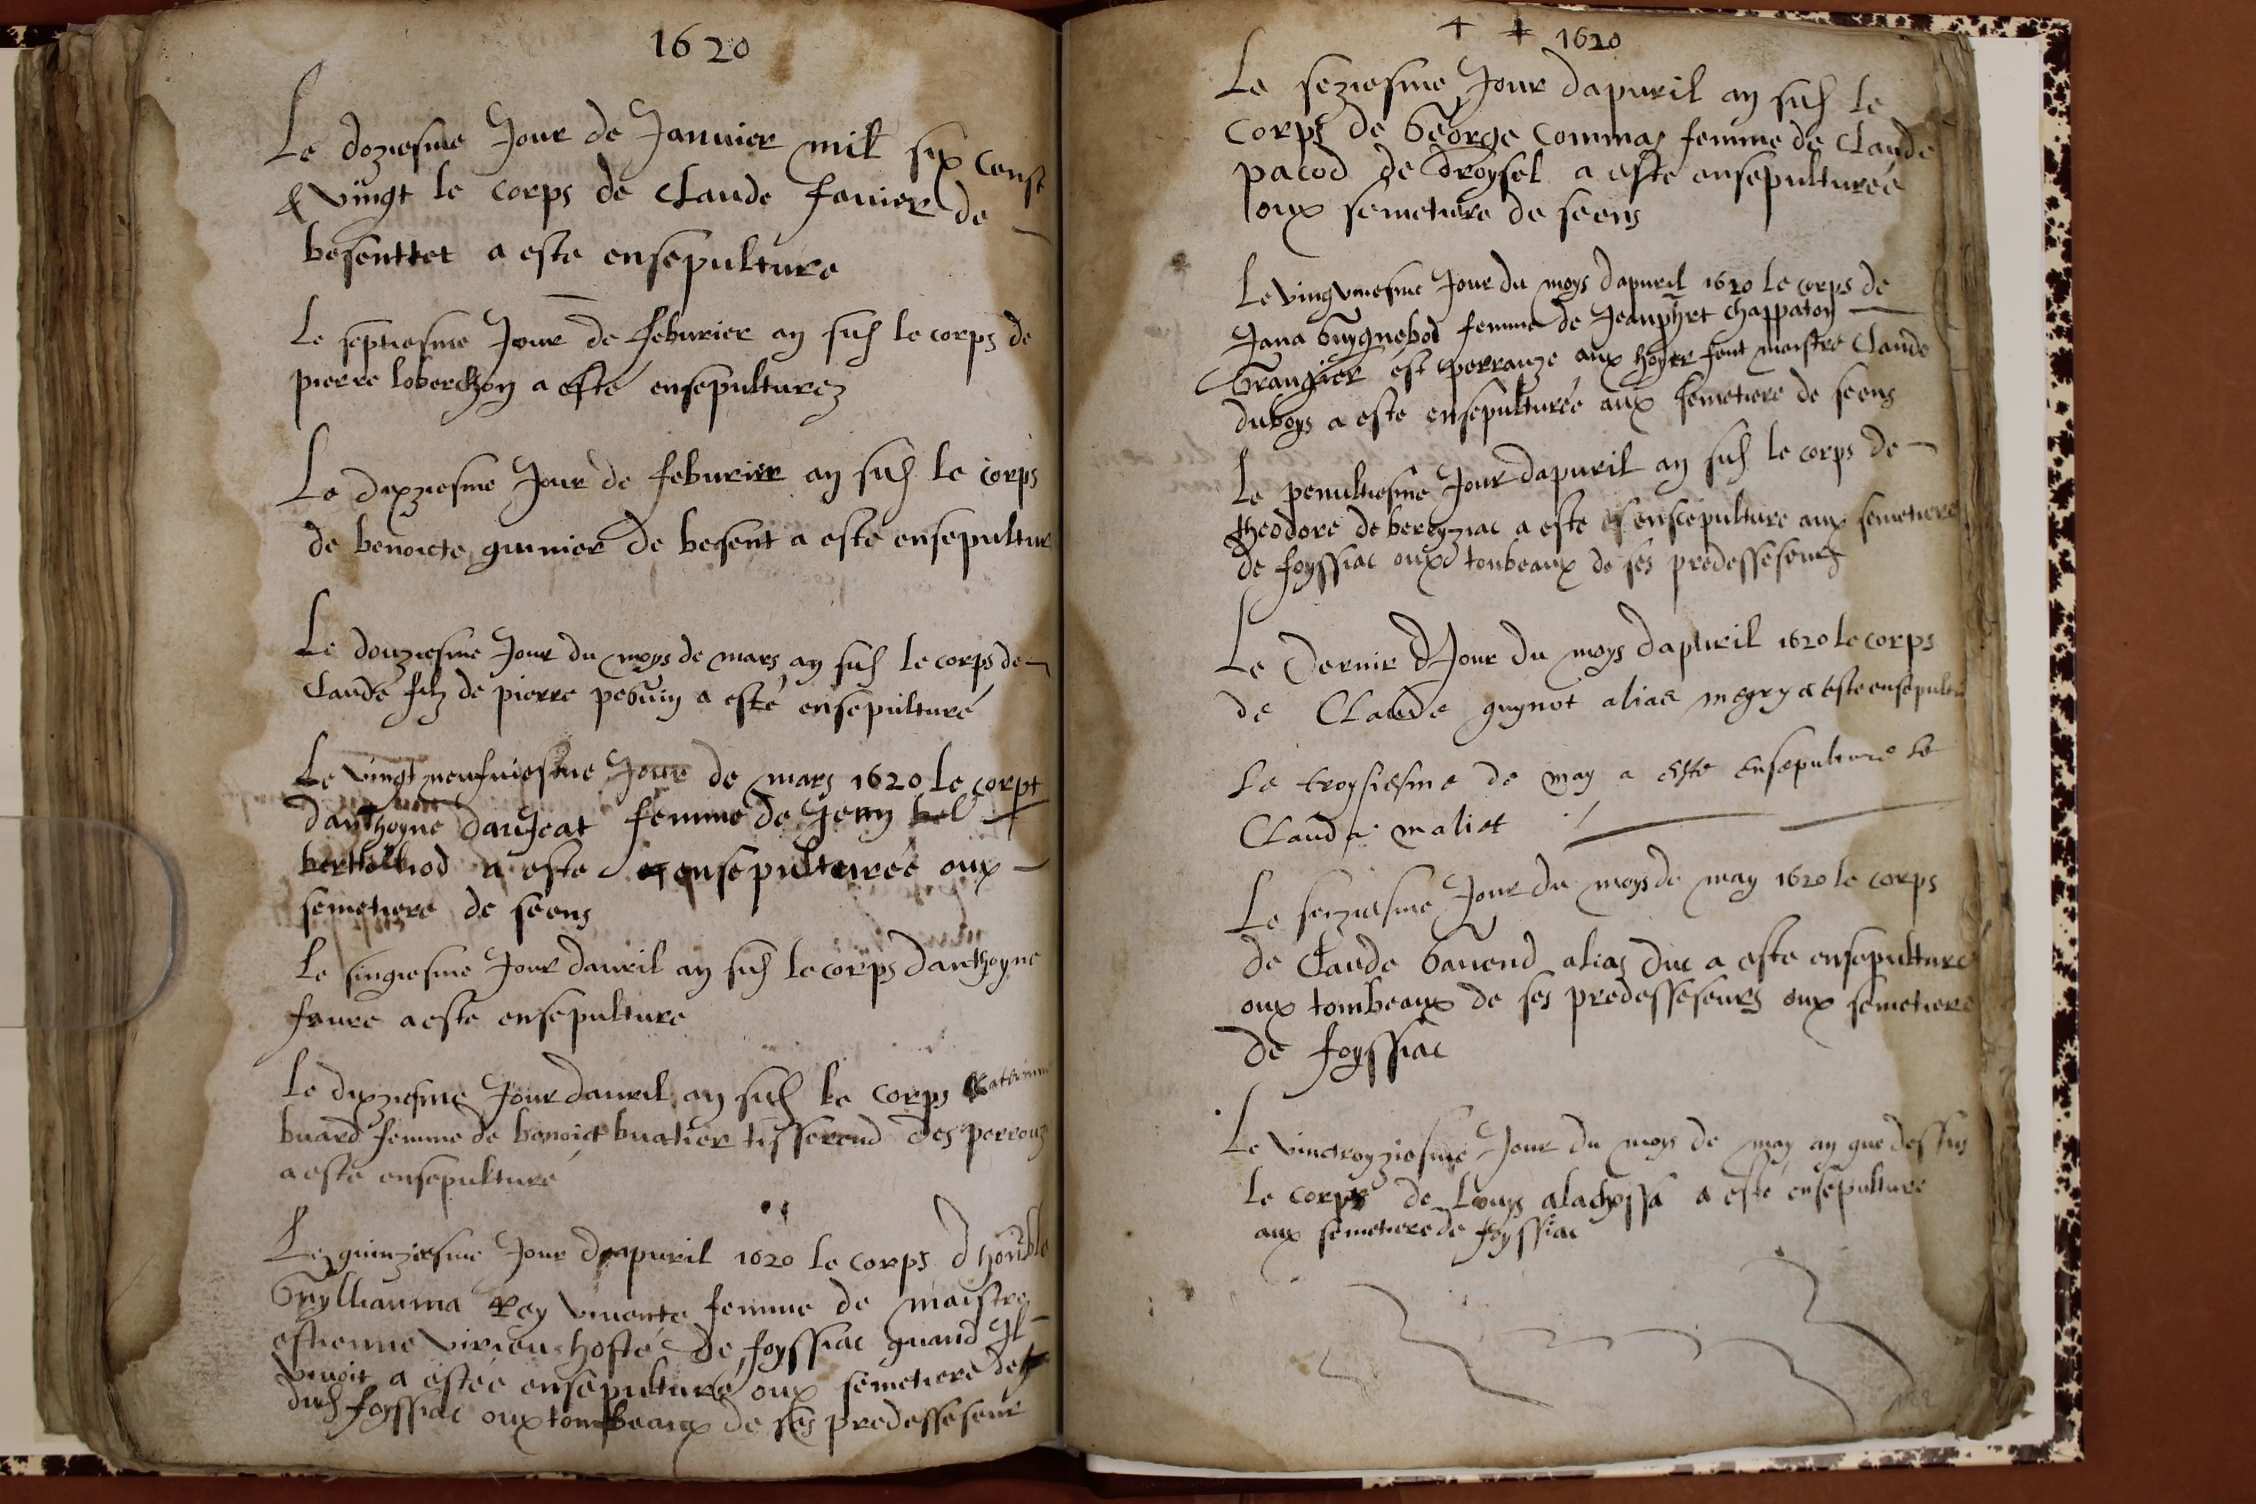 1620
Le doziesme Jour de Januier mil six censt
& vingt le corps de Claude fauier de
besenttet a este ensepulture
Le septiesme Jour de feburier an susd le corps de
pierre loberchon a esté ensepulturez
Le dixziesme Jour de feburier an susd le corps
de benoicte guinier de besent a este ensepultur
Le douziesme Jour du moys de mars an susd le corps de
Claude filz de pierre peguin a esté ensepulturé
Le vingt neufuiesme Jour de mars 1620 le corpt
danthoyne danjeat femme de Jenny bel
berthelliod a este ensepulturée oux
semetiere de seens
Le singiesme Jour dauril an susd le corps danthoyne
faure a este ensepulture
Le dixziesme Jour dauril an susd le corps Katerinne
buard femme de benoict buatier tisserend des perrouz
a este ensepulturé
Le quinziesme Jour dapuril 1620 le corps d honble
Guylliauma Rey viuente femme de maistre
estienne virieu hoste de foyssiac quand Il
viuoit a estée ensepulturé oux semetiere de
dud foyssiac oux tombeaux de ses predesseseur
1620
Le seziesme Jour dapuril an susd le
corps de George Commas femme de Claude
pacod de droysel a este ensepulturée
oux semetiere de seens
Le vingvniesme Jour du moys dapuril 1620 le corps de
Jana Guygnebod femme de Jeanphet Chappaton
Grangier est perrauze aux hoyer feut maistre Claude
duboys a este ensepulturée aux semetiere de seens
Le penultiesme Jour dapuril an susd le corps de
theodore de bereyziac a este ensepulture aux semetiere
de foyssiac oux tonbeaux de ses predesseseurs
Le Dernir Jour du moys dapuril 1620 le corps
de Claude guynot alias megry a este ensepultu
Le troysiesme de may a este ensepulture le
Claude maliet
Le seiziesme Jour du moys de may 1620 le corps
de Claude Gauend alias Duc a este ensepulturé
oux tombeaux de ses predesseseurs oux semetiere
de foyssiac
Le vinctroyziesme Jour du moys de may an que dessus
le corps de Louys alachossa a esté ensepulture
aux semetiere de foyssiac